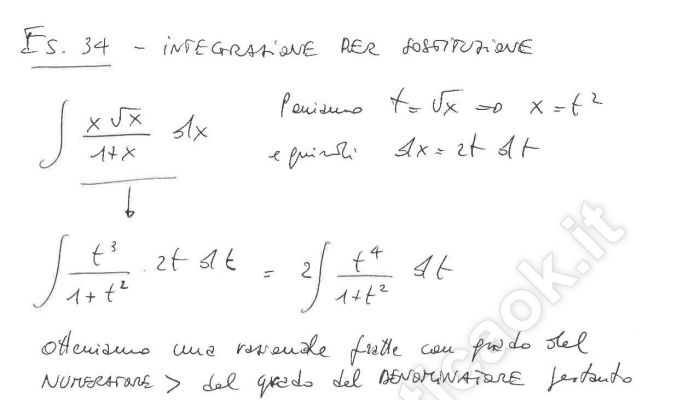 Es. 34 - INTEGRAZIONE PER SOSTITUZIONE
∫ x√x / 1+x dx Poniamo t=√x ⇒ x=t²
e quindi dx=2t dt
↓
∫ t³ / 1+t² · 2t dt = 2∫ t⁴ / 1+t² dt
Otteniamo una razionale fratta con grado del
NUMERATORE > del grado del DENOMINATORE pertanto
ticaok.it